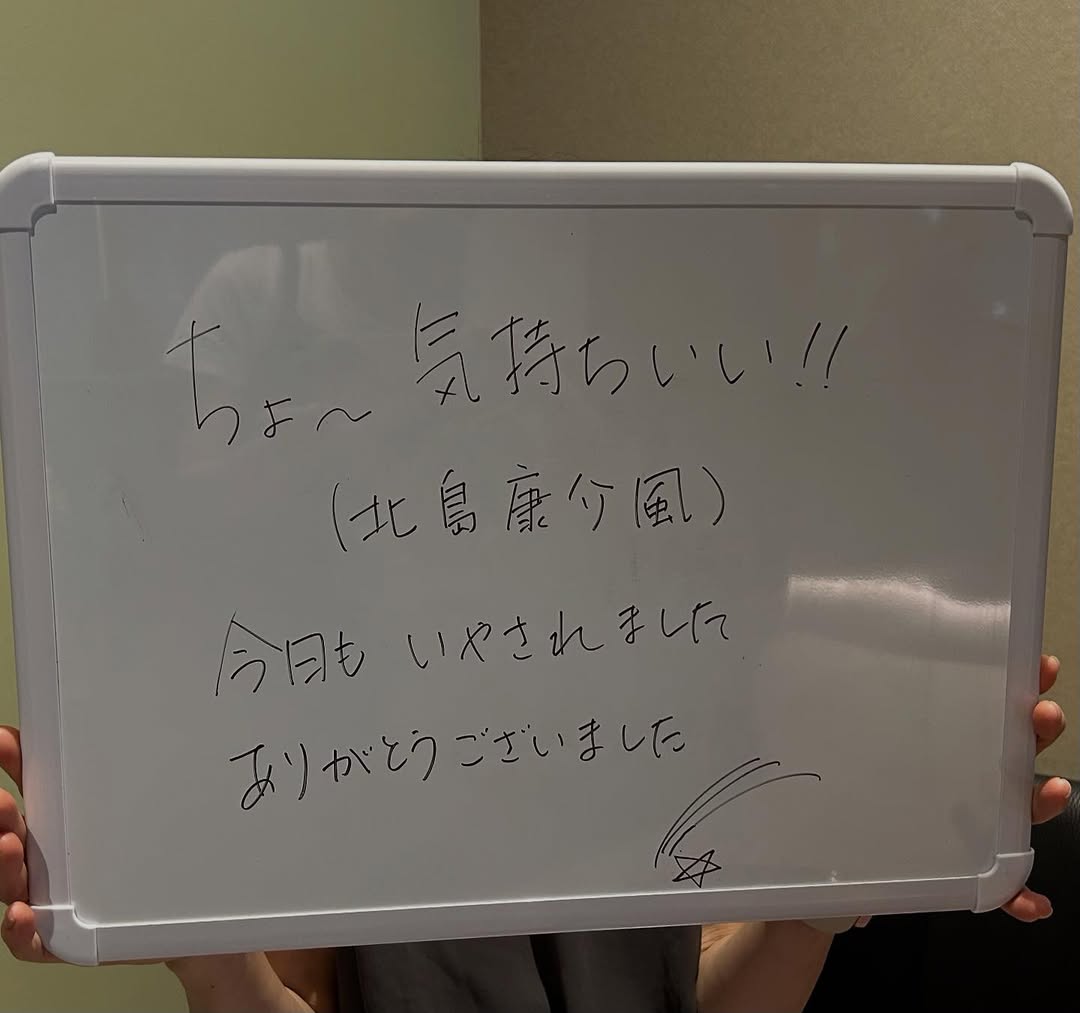 ちょ〜 気持ちいい!!
(北島康介風)
今日も いやされました
ありがとうございました